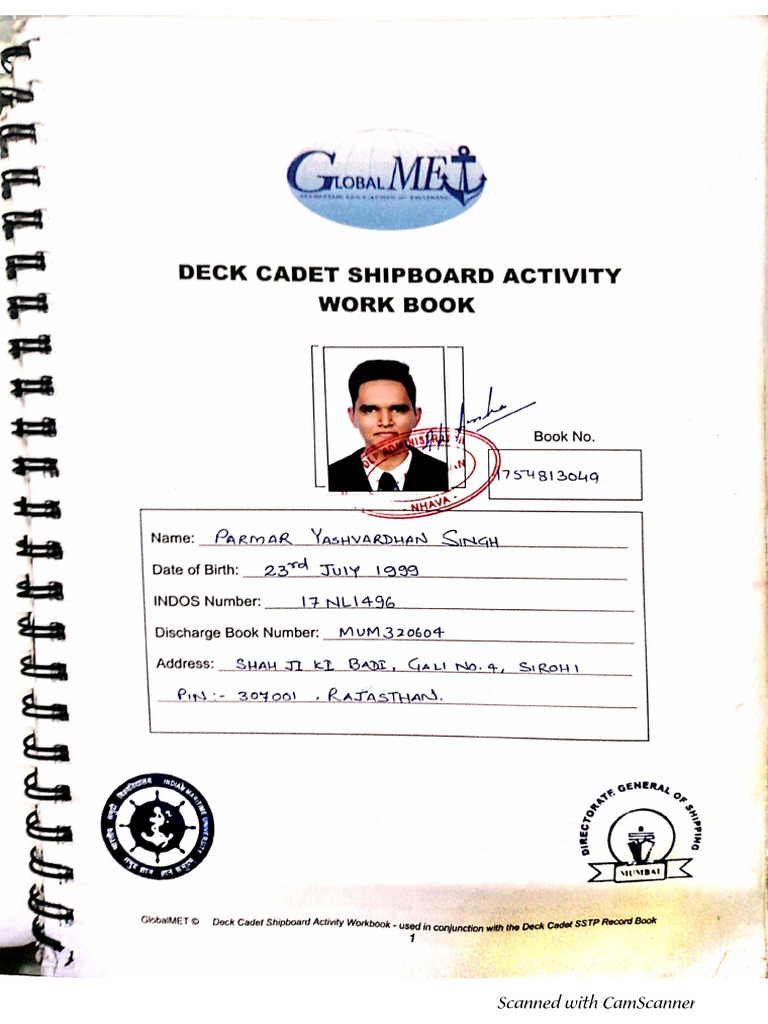 GLOBAL MET
DECK CADET SHIPBOARD ACTIVITY
WORK BOOK
Book No.
1754813049
DLP ADMINISTRAT
- NHAVA -
Name: PARMAR YASHVARDHAN SINGH
Date of Birth: 23rd JULY 1999
INDOS Number: 17NL1496
Discharge Book Number: MUM320604
Address: SHAH JI KI BADI, GALI NO. 4, SIROHI
PIN :- 307001 . RAJASTHAN.
INDIAN MARITIME UNIVERSITY
DIRECTORATE GENERAL OF SHIPPING
MUMBAI
GlobalMET © Deck Cadet Shipboard Activity Workbook - used in conjunction with the Deck Cadet SSTP Record Book
1
Scanned with CamScanner